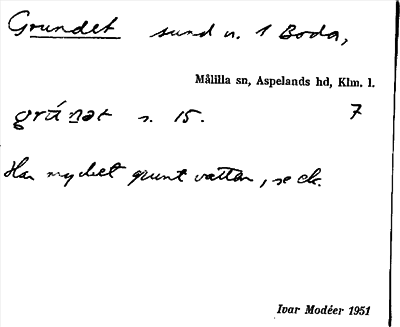 Grundet sund n. 1 Boda,
Målilla sn, Aspelands hd, Klm. l.
grúnət n. 15. 7
Har mycket grunt vatten, se ek.
Ivar Modéer 1951